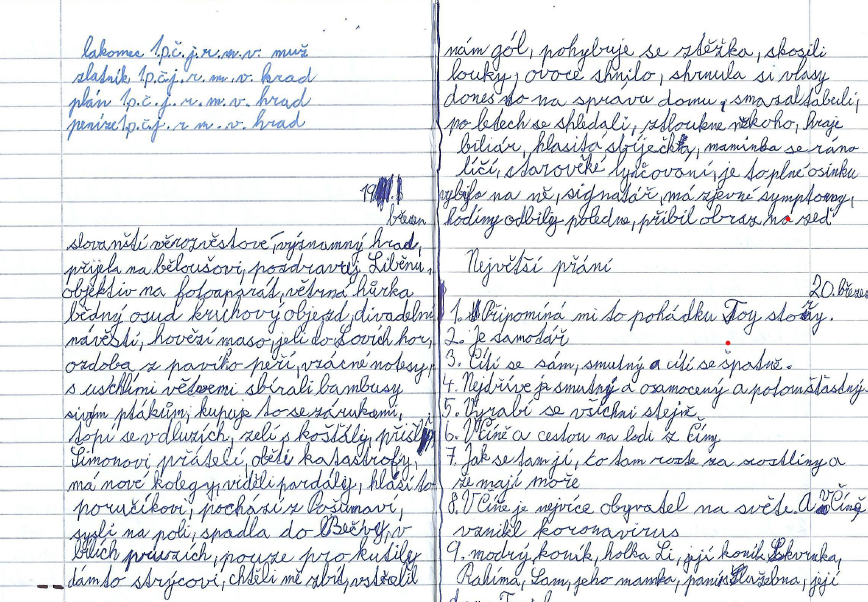 lakomec 1.p.č.j.r.m.v. muž
zlatník 1.p.č.j.r.m.v. hrad
plán 1.p.č.j.r.m.v. hrad
peníze 1.p.č.j.r.m.v. hrad
19.
březen
slovanští věrozvěstové, významný hrad,
přijela na běloušovi, pozdravuj Liběnu,
objektiv na fotoaparát, větrná hůrka
bědný osud kruhový objezd, divadelní
návěstí, hovězí maso, jeli do Lovích hor,
ozdoba z pavího peří, vzácné notesy,
s uschlími větvemi sbírali bambusy
sivým ptákům, kupuje to se zárukami,
topí se v dluzích, zelí s košťály, přišli
Šimonovi přátelé oběti katastrofy,
má nové kolegy, viděli pardály, hlásí to
poručíkovi, pochází z Pošumaví,
sysli na poli, spadla do Bečvy, v
bílích příuzích, pouze pro kutily
dám to strýcovi, chtěli mě zbít, vstřelil
nám gól, pohybuje se ztěžka, skosili
louky, ovoce shnilo, shrnula si vlasy
dones to na správu domu, smazal tabuli,
po letech se shledali, ztloukne koho, hraje
biliár, hlasitá stříječka, maminka se ráno
líčí, starověké lynčovaní, je to plné osinku
vybyla na ně, signatář, má zjevné symptomy,
hodiny odbily poledne, přibil obraz na zeď
Největší přání
20. březen
1. Připomíná mi to pohádku Toy story.
2. Je samotář
3. Cítí se sám, smutný a cítí se špatně.
4. Nejdříve je smutný a osamocený a potom šťastný.
5. Vyrabí se všichni stejně
6. V Číně a cestou na lodi z Číny
7. Jak se tam jí, co tam roste za rostliny a
že mají moře
8. V Číně je nejvíce obyvatel na světě. A v Číně
vznikl koronavirus
9. modrý koník, holka Li, její koník, Skvrnka,
Rahíma, Sam, jeho mamka, paní Služebna, její